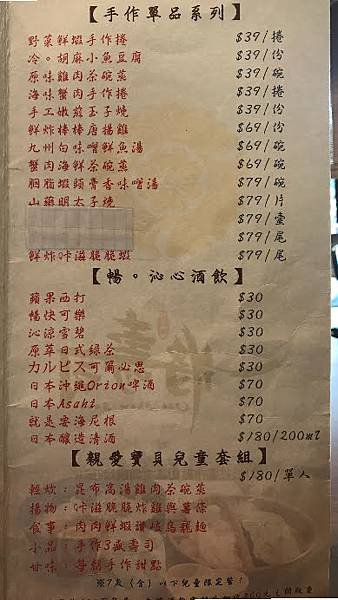 【手作單品系列】
野菜鮮蝦手作捲 $39/捲
冷。胡麻小魚豆腐 $39/份
原味雞肉茶碗蒸 $39/碗
海味蟹肉手作捲 $39/捲
手工嫩煎玉子燒 $39/份
鮮炸棒棒唐揚雞 $69/份
九州白味噌鮮魚湯 $69/碗
蟹肉海鮮茶碗蒸 $79/碗
胭脂蝦頭膏香味噌湯 $79/碗
山藥明太子燒 $79/片
$79/壺
$79/尾
鮮炸咔滋脆脆蝦 $79/尾
【暢。沁心酒飲】
蘋果西打 $30
暢快可樂 $30
沁涼雪碧 $30
原萃日式綠茶 $30
カルピス可爾必思 $30
日本沖繩Orion啤酒 $70
日本Asahi $70
就是要海尼根 $70
日本釀造清酒 $180/200ml
【親愛寶貝兒童套組】
$180/單人
輕炊：昆布高湯雞肉茶碗蒸
揚物：咔滋脆脆炸雞與薯條
食事：肉肉鮮蝦讚岐烏龍麵
小品：手作3感壽司
甘味：每朝手作甜點
※7歲(含)以下兒童限定餐！